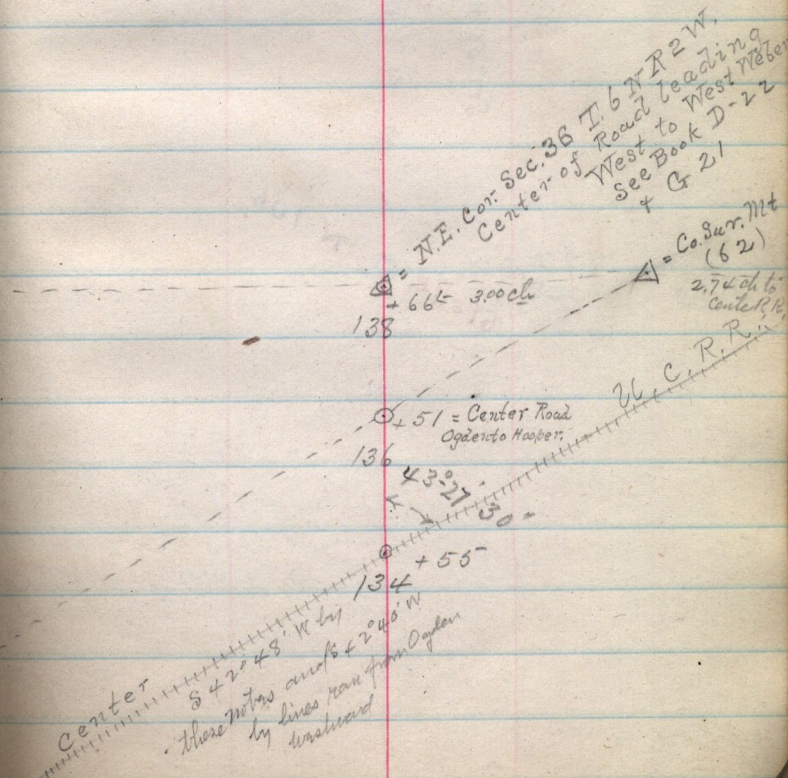 = N.E. Cor. Sec. 36 T. 6 N R 2 W.
Center of Road leading
West to West Weber
See Book D-22
+ G 21
= Co. Sur. Mt
(62)
2.74 ch to
Center R,R,
+ 66 3.00 ch
138
U. C. R. R.
+ 51 = Center Road
Ogden to Hooper.
136
43°-27' 30"
+ 55
134
Center
S 42° 48' W by
these notes and S 42° 40' W
by lines ran from Ogden
westward